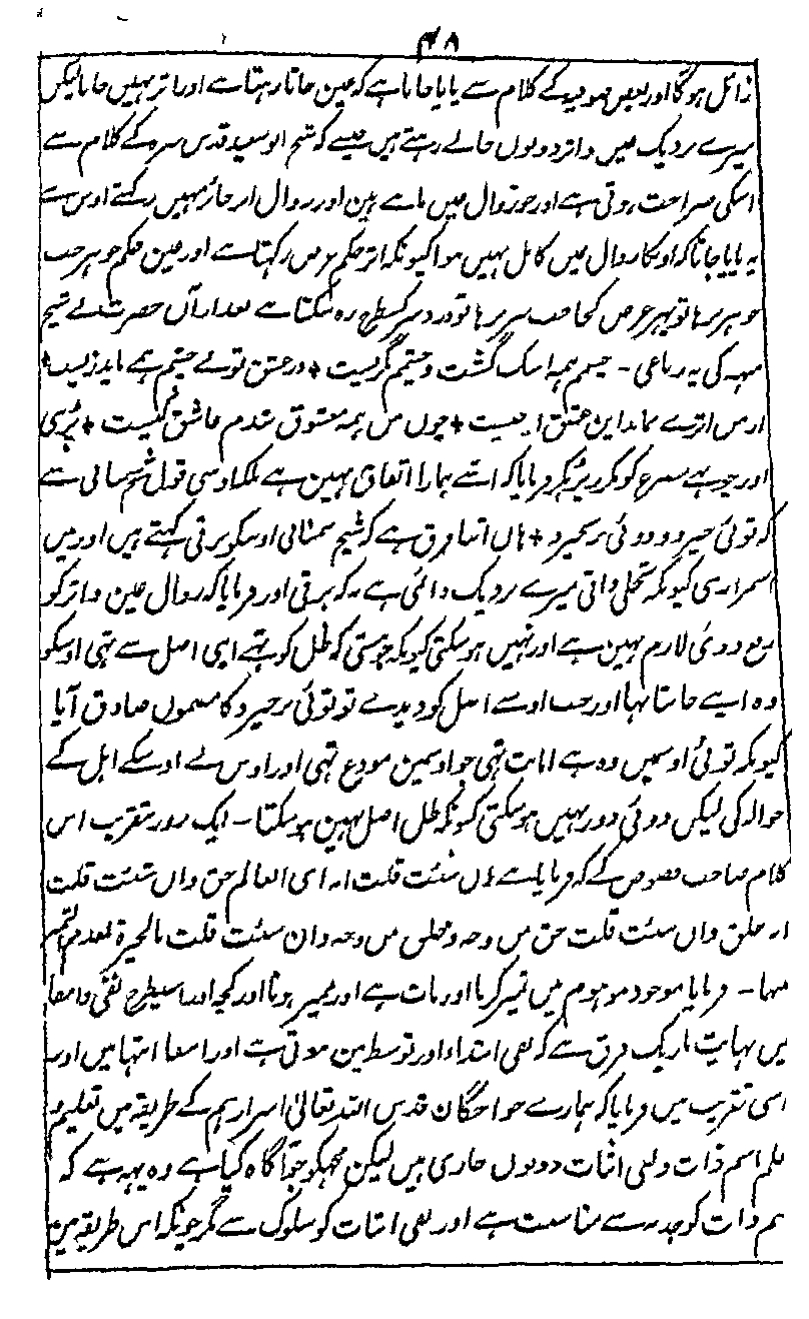 ۴۸
زائل ہوگا اور بعض صوفیہ کے کلام سے پایا جاتا ہے کہ عین جاتا رہتا ہے اور اثر نہیں جاتا لیکن
میرے نزدیک عین و اثر دونوں جاتے رہتے ہیں جیسے کہ شیخ ابو سعید قدس سرہ کے کلام سے
اسکی صراحت ہوتی ہے اور جو زوال عین مانتے ہین اور زوال اثر جائز نہیں رکھتے اوس سے
یہ پایا جاتا کہ اونکا زوال عین کامل نہیں ہوا کیونکہ اثر حکم عرض رکہتا ہے اور عین حکم جوہر جب
جوہر نرہا تو پہر عرض کہا جب سر نرہا تو درد سر کسطرح رہ سکتا ہے بعد ازاں حضرت نے شیخ
مہنہ کی یہ رباعی - جسمم ہمہ اشک گشت و چشمم گریست * در عشق تو بے چشم ہمے باید زیست *
از من اثرے نماند این عشق از چیست * چوں من ہمہ معشوق شدم عاشق کیست * پڑہی
اور چوتہے مصرع کو مکرر پڑہکر فرمایا کہ اسے ہمارا اتفاق نہین ہے بلکہ اوسی قول شیخ سے
کہ توئی خیزد و دوئی برنخیزد * ہاں اتنا فرق ہے کہ شیخ سمنانی اوسکو برقی کہتے ہیں اور میں
استمراری کیونکہ تجلی ذاتی میرے نزدیک دائمی ہے نہ کہ برقی اور فرمایا کہ زوال عین و اثر کو
رفع دوئی لازم نہین ہے اور نہیں ہو سکتی کیونکہ جو ہستی کہ ظل کو ہے اپنی اصل سے تہی اوسکو
وہ اپنے جانتا تہا اور جب اوسے اصل کو دیدے تو توئی برخیزد کا مضمون صادق آیا
کیونکہ توئی اوسمیں وہ ہے امانت تہی جو اوسمین مودع تہی اور اوس نے اوسکے اہل کے
حوالہ کی لیکن دوئی دور نہیں ہو سکتی کیونکہ ظل اصل نہین ہو سکتا - ایک روز بتقریب اس
کلام صاحب فصوص کے کہ فرمایا ہے ان شئت قلت انہ ای العالم حق وان شئت قلت
انہ خلق وان شئت قلت حق من وجہ وخلق من وجہ وان شئت قلت بالحیرۃ لعدم التمیز
بینہما - فرمایا موجود موہوم میں تمیز کرنا اور بات ہے اور ہونا اور کچہ اور اسیطرح نفی وانتفا
میں نہایت باریک فرق ہے کہ نفی ابتدا اور توسط مین ہوتی ہے اور انتفا انتہا میں اور
اسی تقریب میں فرمایا کہ ہمارے خواجگان قدس اللہ تعالیٰ اسرارہم کے طریقہ میں تعلیم و
اسم ذات و نفی اثبات دونوں جاری ہیں لیکن مجہکو جو آگاہ کیا ہے وہ یہہ ہے کہ
اسم ذات کو جذبہ سے مناسبت ہے اور نفی اثبات کو سلوک سے مگر چونکہ اس طریقہ مین